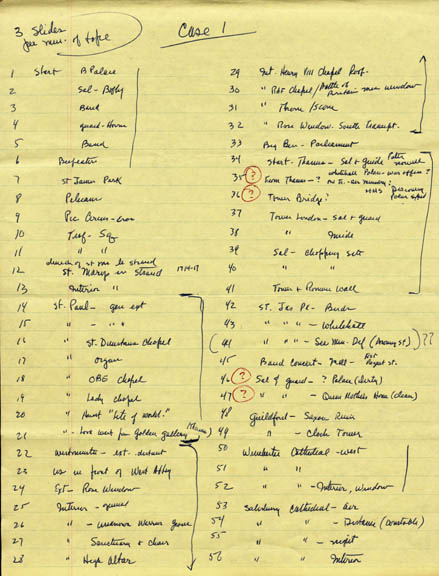 3 Slides
per min. of tape
Case 1
1 Start B Palace
2 Sal - Bobby
3 Band
4 Guard - Horse
5 Band
6 Beefeater
7 St James Park
8 Pelican
9 Pic Circus - Eros
10 Traf - Sq
11 " "
church of st m le strand
12 St. Marys in Strand 1714-17
13 Interior "
14 St. Paul - gen ext
15 " - " "
16 " St. Dunstans Chapel
17 " organ
18 " OBE chapel
19 " Lady chapel
20 " Hunt "Lite of World."
21 " - Look west from Golden gallery
22 Westminster - ext. distant
23 us in front of West Abby
24 Ext - Rose Window
25 Interior - general
26 " - unknown Warrior Grave
27 " Sanctuary + choir
28 " High Altar
29 Int. Henry VIII Chapel Roof.
30 " RAF Chapel / Battle of Britain mem window
31 " Throne / Scone
32 " Rose Window. South Transept.
33 Big Ben - Parliament
34 Start - Thames - Sal + guide
35 ? From Thames - ? Whitehall Palace - war office ?
36 ? Tower Bridge? HMS Discovery
37 Tower London - Sal + guard
38 " Inside
39 Sal - chopping
40 " "
41 Tower + Roman Wall
42 St. Jas Pk - Birds
43 " " " - Whitehall
(44 " " " - See Min. Def ) ??
45 Band Concert - Mall - Not Regent St.
46 ? Sal + guard - ? Palace (dirty)
47 ? " " - Queen Mothers House (clean)
48 Guildford - Saxon Ruin
49 " - Clock Tower
50 Winchester Cathedral - West
51 " "
52 " " - Interior, window
53 Salisbury Cathedral - air
54 " " - Distance (Constable)
55 " "
56 " " Interior